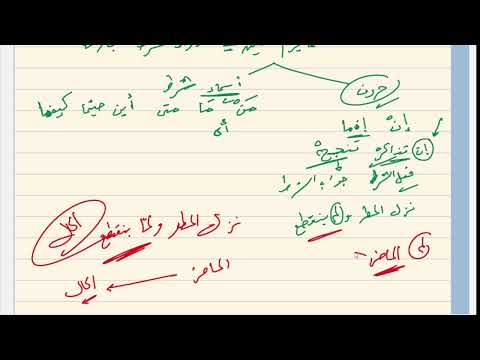 أسماء شرط
حروف
مَنْ مَا متى أين حيثما كيفما
أي
إنْ إذما
إن تذاكرْ تنجحْ
فعل الشرط جواب الشرط
نزل المطر ولم ينقطع
نزل المطر ولمّا ينقطع
الحال
لم الماضي
الماضي
الحال